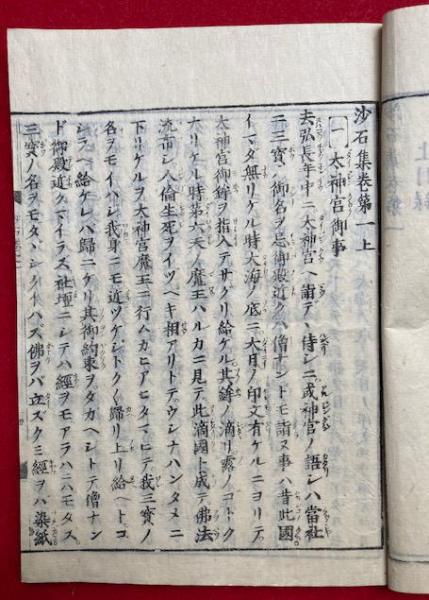 沙石集巻第一上
一 太神宮御事
去弘長年中ニ太神宮ヘ詣デヽ侍シニ或神官ノ語シハ當社
ニ三寳ノ御名ヲ忌御殿近クハ僧ナントモ詣ヌ事ハ昔此國
イマダ無リケル時大海ノ底ニ大日ノ印文有ケルニヨリテ
太神宮御鉾ヲ指入テサグリ給ケル其鉾ノ滴リ露ノコトク
ナリケル時第六天ノ魔王ハルカニ見テ此滴國ト成テ佛法
流布シ人倫生死ヲイツヘキ相アリトテウシナハンタメニ
下リケルヲ太神宮魔王ニ行ムカヒアヒタマヒテ我三寳ノ
名ヲモイハシ我身ニモ近ツケシトクヽ歸リ上リ給ヘトコ
シラヘ給ケレハ歸ニケリ其御約束ヲタカヘシトテ僧ナン
ド御殿近クマイラズ社壇ニシテハ經ヲモアラハニハモタス
三寳ノ名ヲモタヽシクイハス佛ヲバ立ズクミ經ヲハ染紙